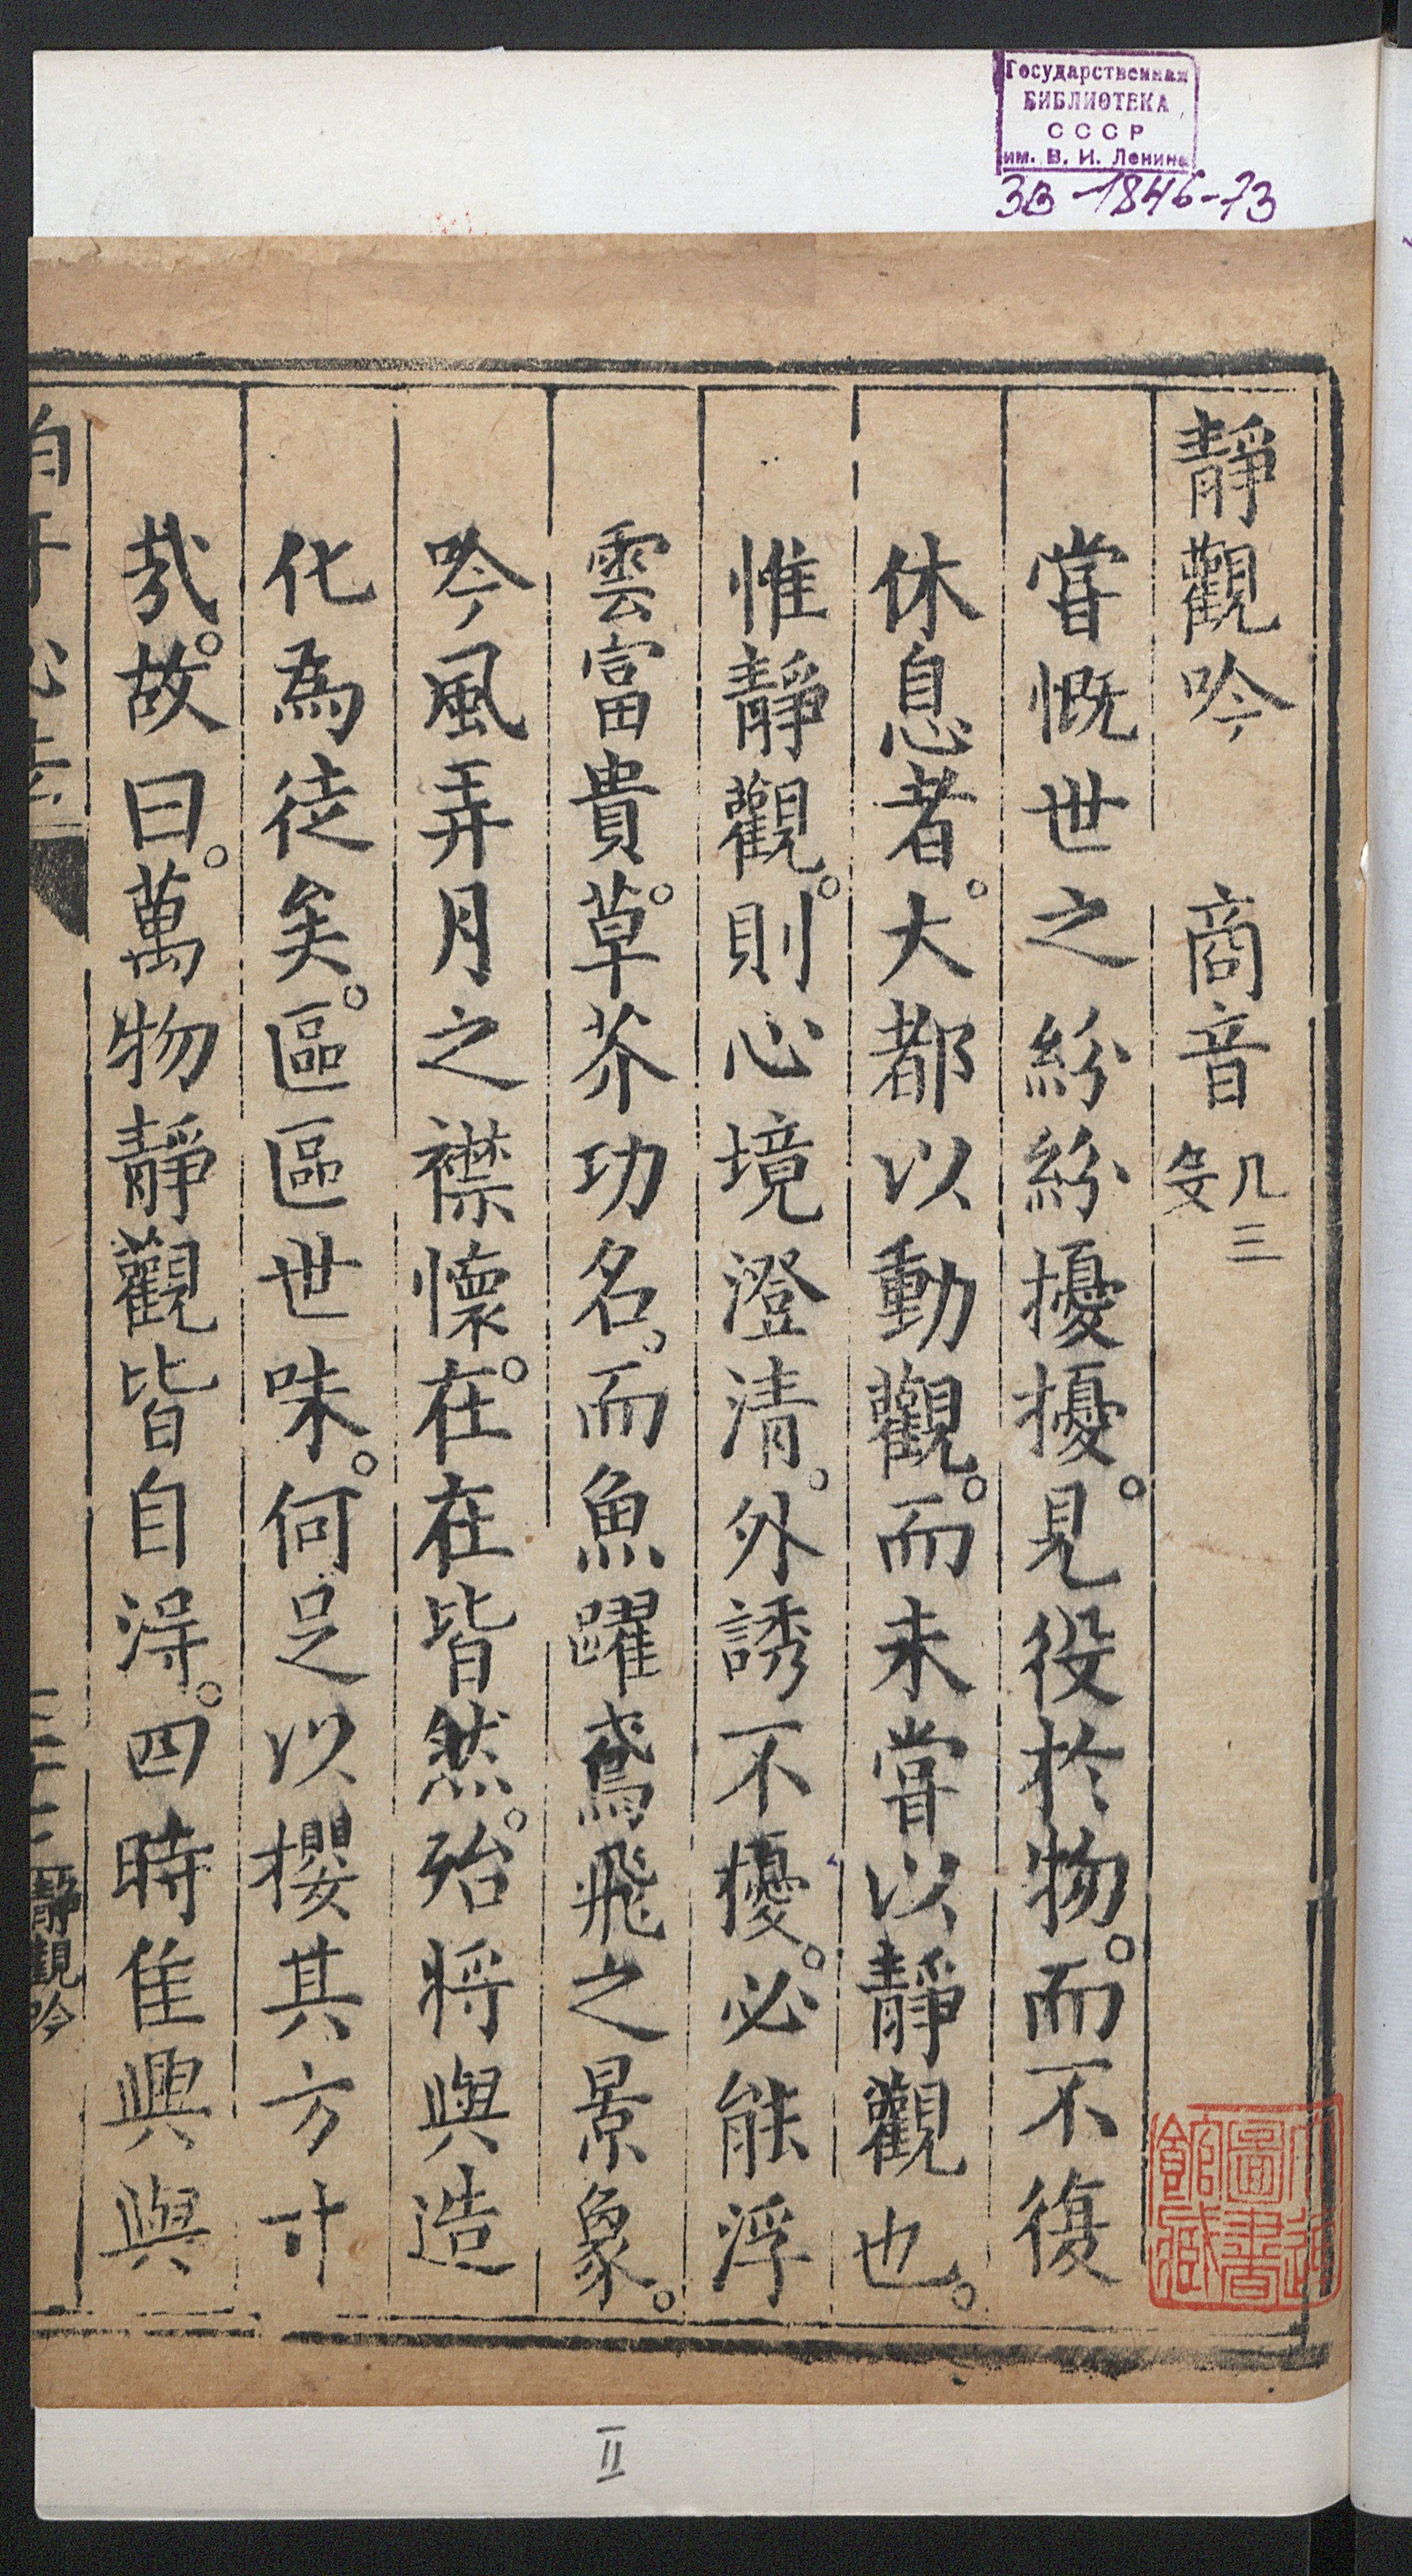 Государственная
БИБЛИОТЕКА
СССР
им. В. И. Ленина
3В-1846-73
靜觀吟　商音　凡三
嘗慨世之紛紛擾擾。見役於物。而不復
休息者。大都以動觀。而未嘗以靜觀也。
惟靜觀。則心境澄清。外誘不擾。必能浮
雲富貴。草芥功名。而魚躍鳶飛之景象。
吟風弄月之襟懷。在在皆然。殆將與造
化為徒矣。區區世味。何足以攖其方寸
哉。故曰。萬物靜觀皆自淂。四時佳興與
伯牙心法
靜觀吟
圖書
館藏
II